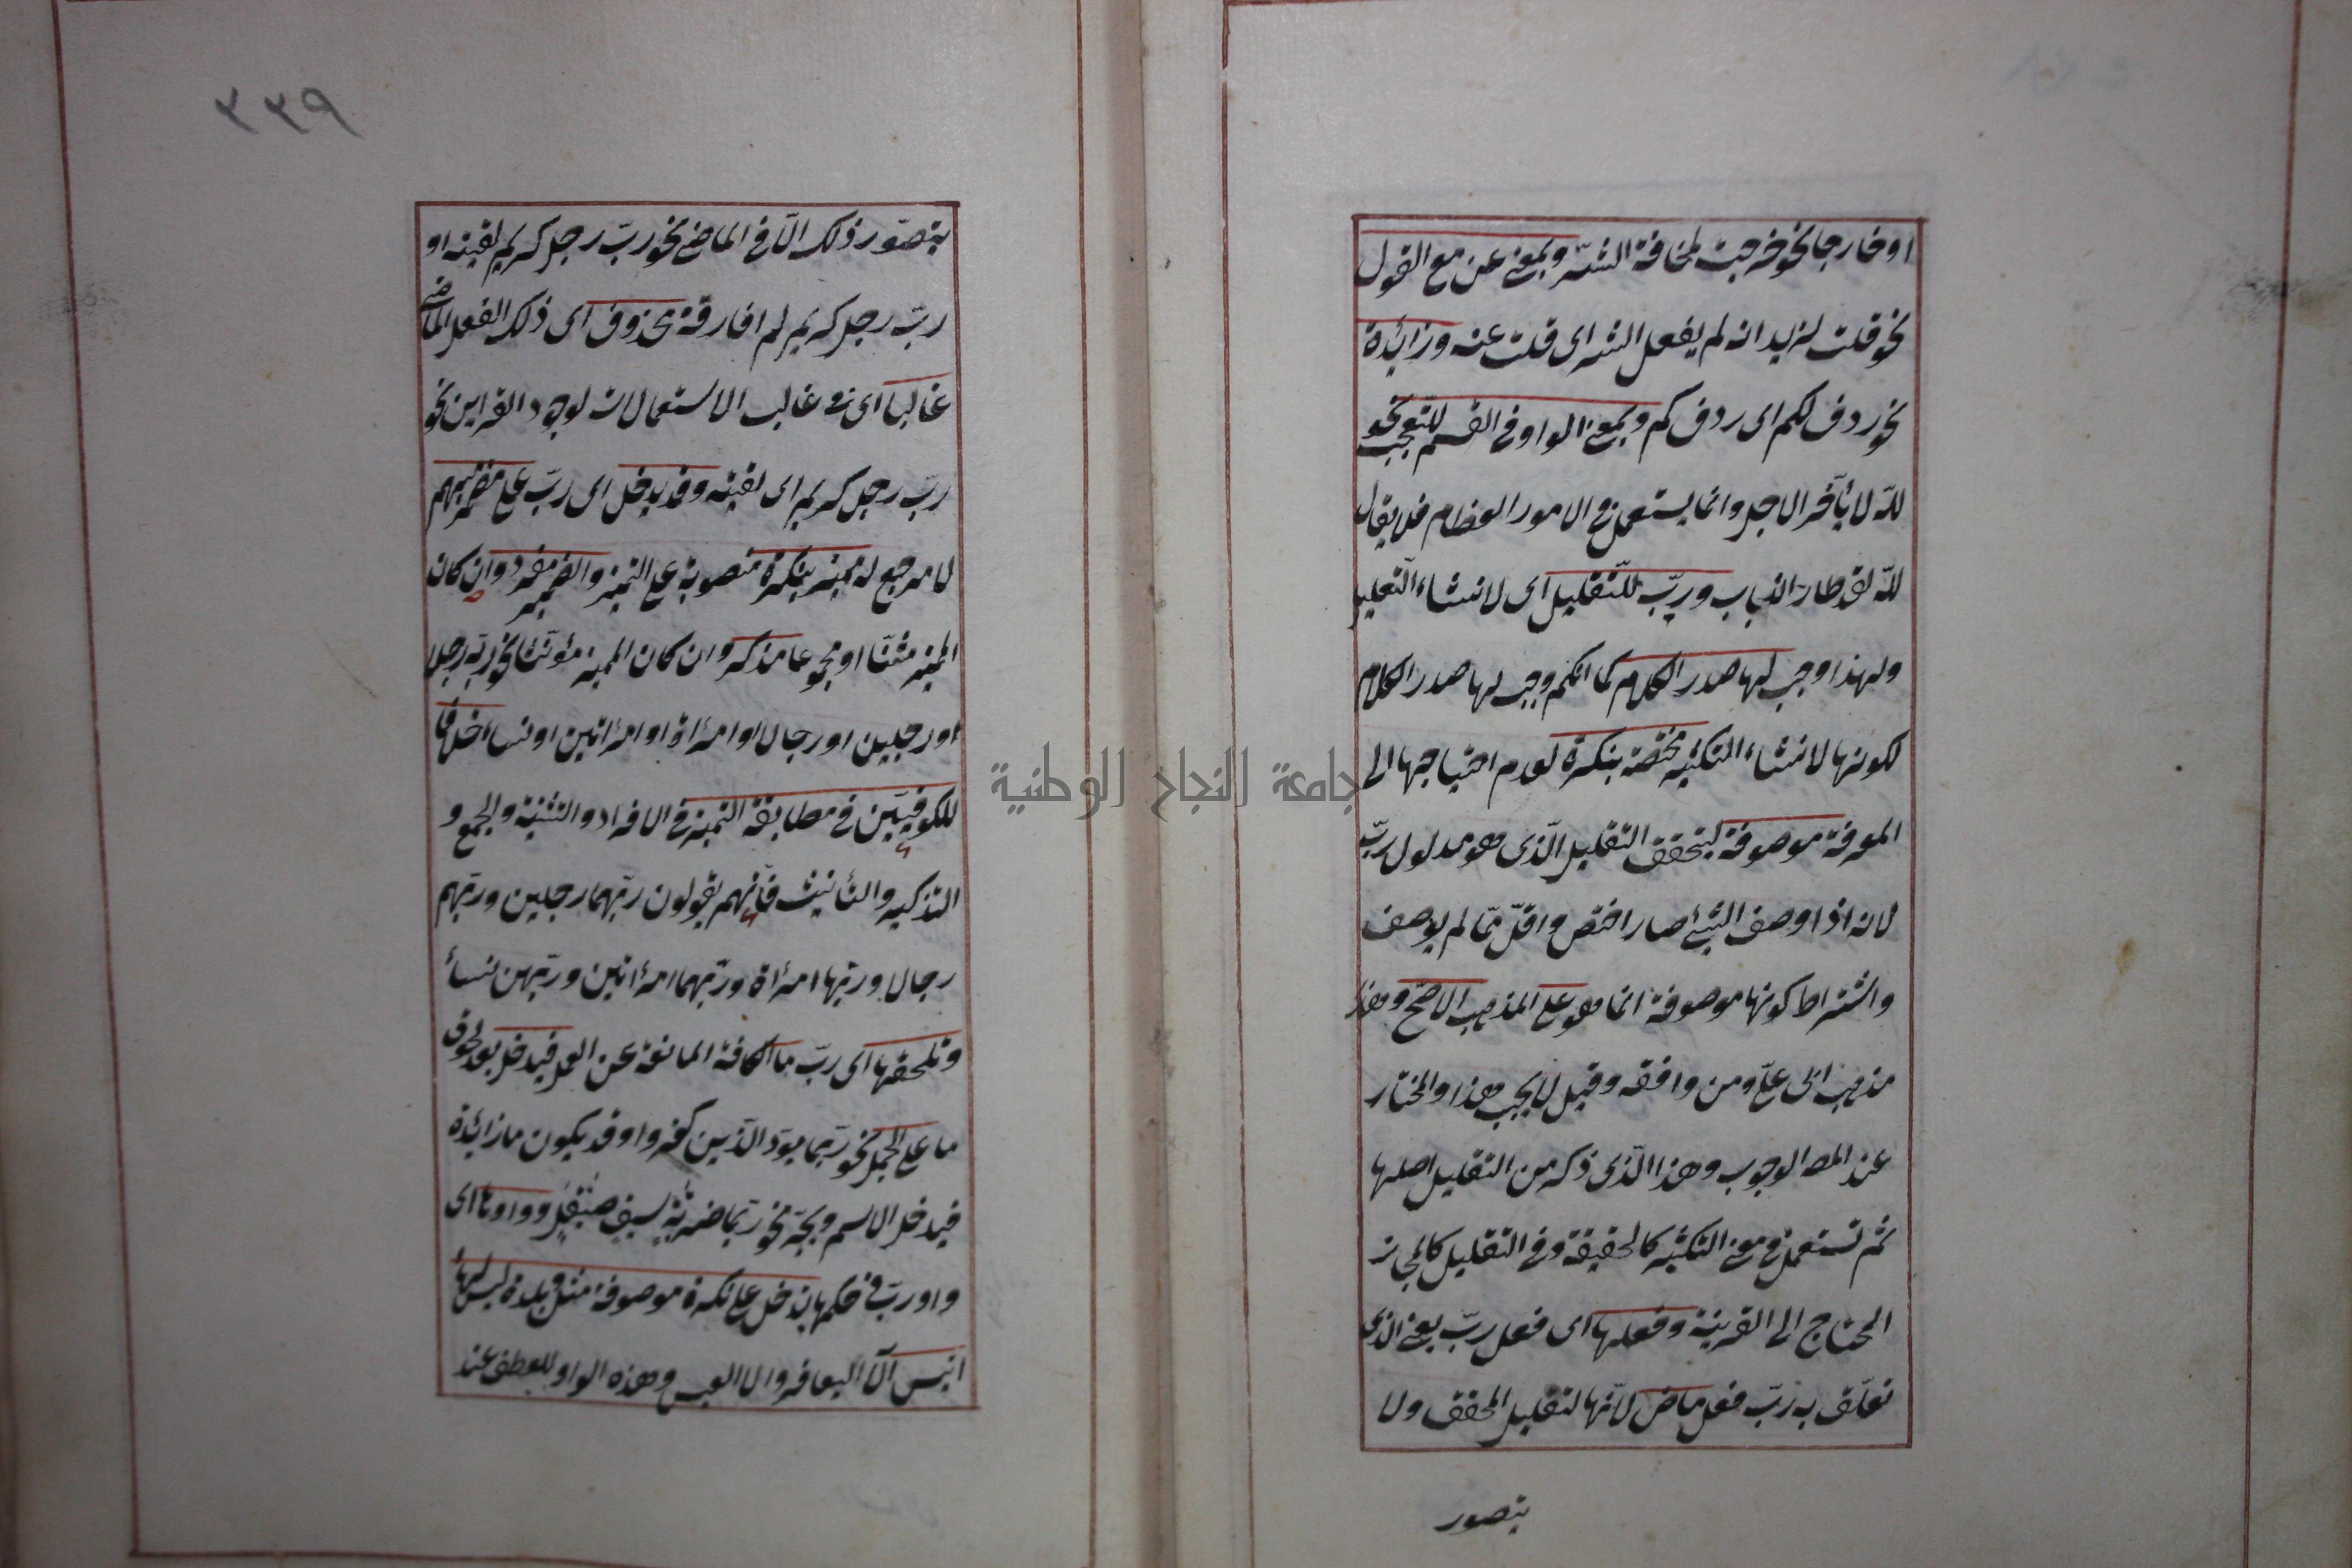 او خارجا نحو خرجت لمخافة الشر وبمعنى عن مع القول
نحو قلت لزيد انه لم يفعل الشر اى قلت عنه وزائدة
نحو ردف لكم اى ردف كم وبمعنى الواو فى القسم للتعجب نحو
لله لا يأخر الاجل وانما يستعمل فى الامور العظام فلا يقال
لله لقد طار الذباب ورب للتقليل اى لانشاء التقليل
ولهذا وجب لها صدر الكلام كما انكم وجب لها صدر الكلام
لكونها لانشاء التكثير مختصة بنكرة لعدم احتياجها الى
المعرفة موصوفة ليتحقق التقليل الّذى هو مدلول ربّ
لانه اذا وصف الشئ صار اخص واقلّ ممّا لم يوصف
واشتراط كونها موصوفة انما هو على المذهب الاصحّ وهذا
مذهب ابى علىّ ومن وافقه وقيل لا يجب هذا والمختار
عند المص الوجوب وهذا الّذى ذكره من التقليل اصلها
ثم تستعمل فى معنى التكثير كالحقيقة وفى التقليل كالمجاز
المحتاج الى القرينة وفعلها اى فعل ربّ يعنى الذى
تعلّق به ربّ فعل ماض لانّها لتقليل المحقق ولا
يتصور
٢٢٩
يتصوّر ذلك الّا فى الماضى نحو ربّ رجل كريم لقيته او
ربّ رجل كريم لم افارقه محذوف اى ذلك الفعل الماضى
غالبا اى فى غالب الاستعمالات لوجود القراين نحو
ربّ رجل كريم اى لقيته وقد يدخل اى ربّ على مضمر مبهم
لا مرجع له مميز بنكرة منصوبة على التميز والضمير مفرد وان كان
المميز مثنّا او مجموعا مذكر وان كان المميز مؤنّثا نحو ربّه رجلا
او رجلين او رجالا او امرأة او امرأتين او نساء خلافا
للكوفيّين فى مطابقة التميز فى الافراد والتثنية والجمع و
التذكير والتأنيث فانّهم يقولون ربّهما رجلين وربّهم
رجالا وربّها امرأة وربّهما امرأتين وربّهن نساء
وتلحقها اى ربّ ما الكافة المانعة عن العمل فيدخل بعد لحوق
ما على الجمل نحو ربّما يودّ الّذين كفروا وقد يكون ما زائدة
فيدخل الاسم ويجرّ نحو ربّما ضربة سيف صيقل وواوها اى
واو ربّ فى حكمها يدخل على نكرة موصوفة مثل وبلدة ليس لها
انيس الّا اليعافر والا العيس وهذه الواو للعطف عند
جامعة النجاح الوطنية